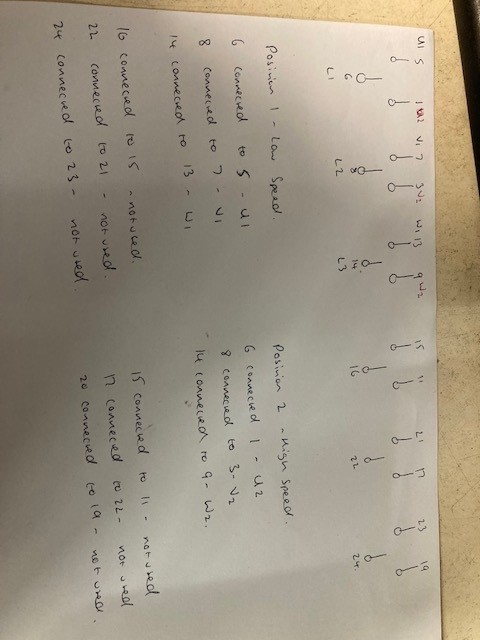 U1 5 1 U2 V1 7 3 V2 W1 13 9 W2 15 11 21 17 23 19
6 8 14 16 22 24
L1 L2 L3
Position 1 - Low Speed.
6 connected to 5 - U1
8 connected to 7 - V1
14 connected to 13 - W1
16 connected to 15 - not used.
22 connected to 21 - not used.
24 connected to 23 - not used.
Position 2 - High Speed.
6 connected 1 - U2
8 connected to 3 - V2
14 connected to 9 - W2.
15 connected to 11 - not used
17 connected to 22 - not used
20 connected to 19 - not used.